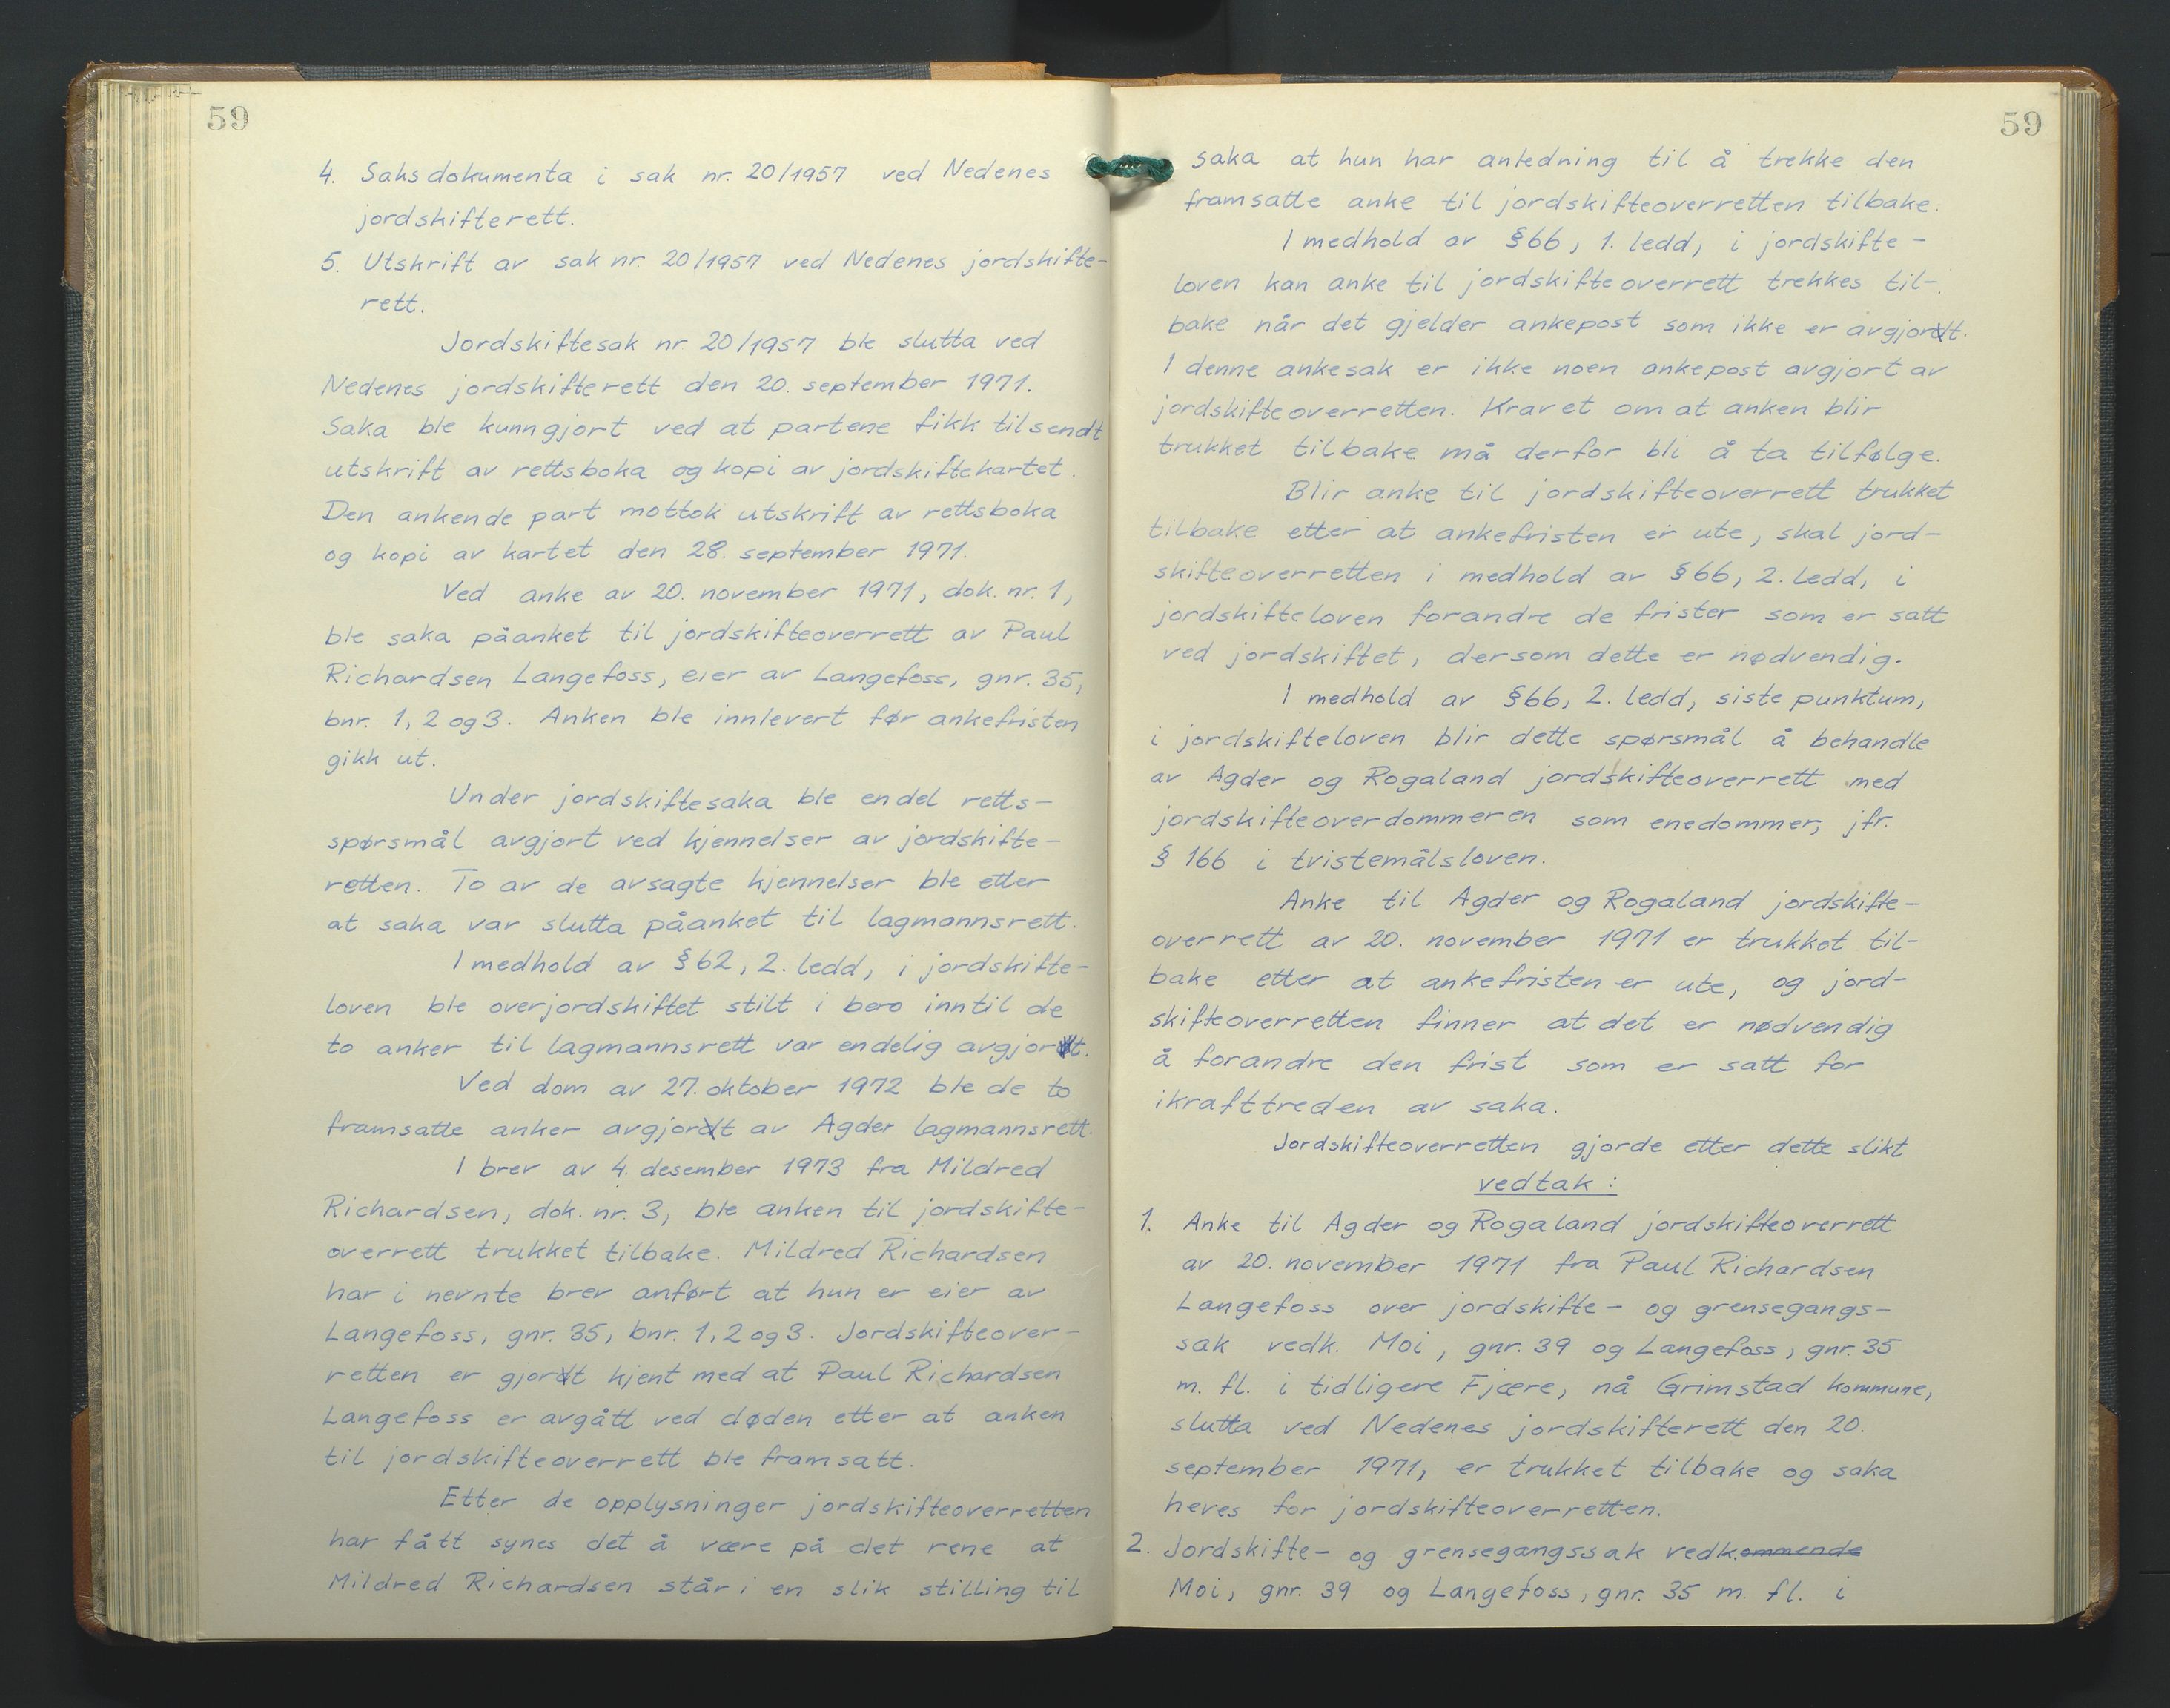 59
4. Saksdokumenta i sak nr. 20/1957 ved Nedenes
jordskifterett.
5. Utskrift av sak nr. 20/1957 ved Nedenes jordskifte-
rett.
Jordskiftesak nr 20/1957 ble slutta ved
Nedenes jordskifterett den 20. september 1971.
Saka ble kunngjort ved at partene fikk tilsendt
utskrift av rettsboka og kopi av jordskiftekartet.
Den ankende part mottok utskrift av rettsboka
og kopi av kartet den 28. september 1971.
Ved anke av 20. november 1971, dok. nr. 1,
ble saka påanket til jordskifteoverrett av Paul
Richardsen Langefoss, eier av Langefoss, gnr. 35,
bnr. 1, 2 og 3. Anken ble innlevert før ankefristen
gikk ut.
Under jordskiftesaka ble endel retts-
spørsmål avgjort ved kjennelser av jordskifte-
retten. To av de avsagte kjennelser ble etter
at saka var slutta påanket til lagmannsrett.
I medhold av §62, 2. ledd, i jordskifte-
loven ble overjordskiftet stilt i bero inntil de
to anker til lagmannsrett var endelig avgjort.
Ved dom av 27. oktober 1972 ble de to
framsatte anker avgjort av Agder lagmannsrett.
I brev av 4. desember 1973 fra Mildred
Richardsen, dok. nr. 3, ble anken til jordskifte-
overrett trukket tilbake. Mildred Richardsen
har i nevnte brev anført at hun er eier av
Langefoss, gnr. 35, bnr. 1, 2 og 3. Jordskifteover-
retten er gjort kjent med at Paul Richardsen
Langefoss er avgått ved døden etter at anken
til jordskifteoverrett ble framsatt.
Etter de opplysninger jordskifteoverretten
har fått synes det å være på det rene at
Mildred Richardsen står i en slik stilling til
59
saka at hun har anledning til å trekke den
framsatte anke til jordskifteoverretten tilbake.
I medhold av §66, 1. ledd, i jordskifte-
loven kan anke til jordskifteoverrett trekkes til-
bake når det gjelder ankepost som ikke er avgjort.
I denne ankesak er ikke noen ankepost avgjort av
jordskifteoverretten. Kravet om at anken blir
trukket tilbake må derfor bli å ta tilfølge.
Blir anke til jordskifteoverrett trukket
tilbake etter at ankefristen er ute, skal jord-
skifteoverretten i medhold av §66, 2. ledd, i
jordskifteloven forandre de frister som er satt
ved jordskiftet, dersom dette er nødvendig.
I medhold av §66, 2. ledd, siste punktum,
i jordskifteloven blir dette spørsmål å behandle
av Agder og Rogaland jordskifteoverrett med
jordskifteoverdommeren som enedommer, jfr.
§ 166 i tvistemålsloven.
Anke til Agder og Rogaland jordskifte-
overrett av 20. november 1971 er trukket til-
bake etter at ankefristen er ute, og jord-
skifteoverretten finner at det er nødvendig
å forandre den frist som er satt for
ikrafttreden av saka.
Jordskifteoverretten gjorde etter dette slikt
vedtak:
1. Anke til Agder og Rogaland jordskifteoverrett
av 20. november 1971 fra Paul Richardsen
Langefoss over jordskifte- og grensegangs-
sak vedk. Moi, gnr. 39 og Langefoss, gnr. 35
m. fl. i tidligere Fjære, nå Grimstad kommune,
slutta ved Nedenes jordskifterett den 20.
september 1971, er trukket tilbake og saka
heves for jordskifteoverretten.
2. Jordskifte- og grensegangssak vedkommende
Moi, gnr. 39 og Langefoss, gnr. 35 m. fl. i